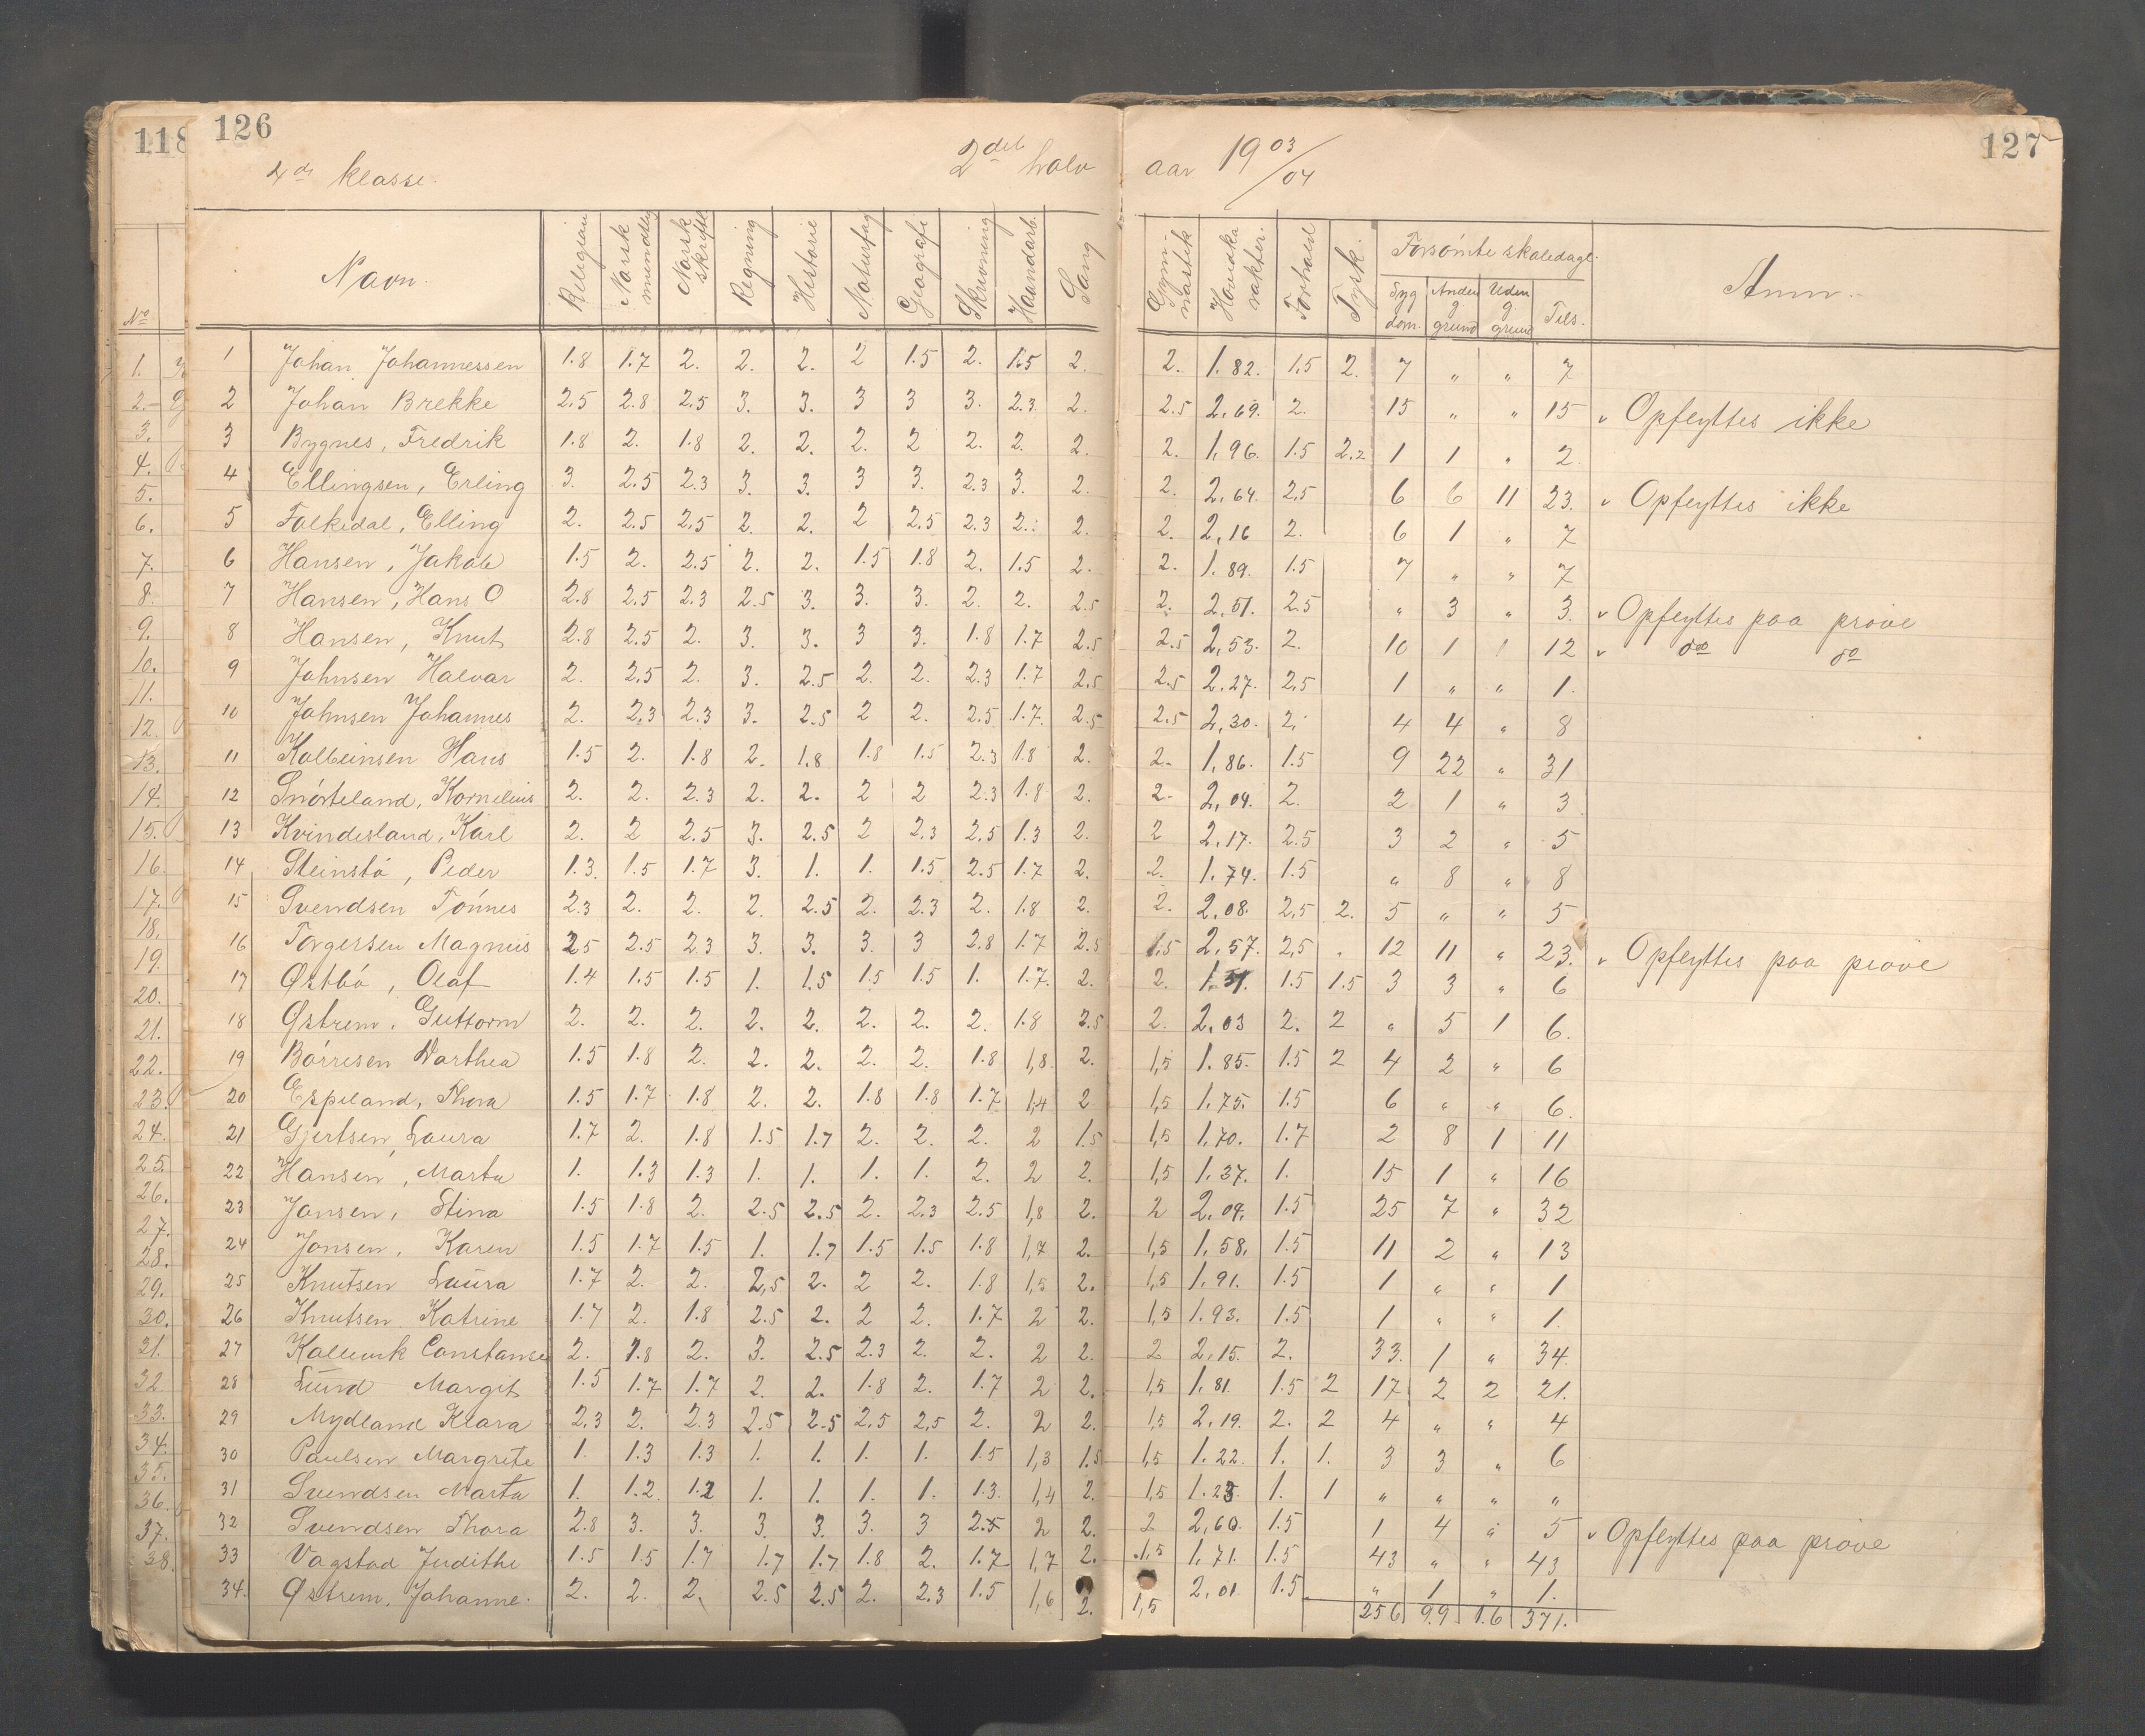 118 126 127
4de klasse. 2det halv aar 1903/04
No Navn. Religion Norsk mundtlig Norsk skriftl Regning Historie Naturfag Geografi Skrivning Haandarb. Sang Gymnastik Hovedkarakter. Forhold Tysk. Forsømte skoledage. Sygdom. Anden g. grund Uden g. grund Tils. Anm.
1 Johan Johannessen 1.8 1.7 2. 2. 2. 2 1.5 2. 1.5 2. 2. 1.82. 1.5 2. 7 " " 7
2 Johan Brekke 2.5 2.8 2.5 3. 3. 3 3 3. 2.3. 2. 2.5 2.69. 2. 15 " " 15 Opflyttes ikke
3 Bygnes, Fredrik 1.8 2. 1.8 2. 2. 2. 2 2. 2. 2. 2. 1.96. 1.5 2.2 1 1 " 2
4 Ellingsen, Erling 3. 2.5 2.3 3. 3. 3 3. 2.3 3. 2. 2. 2.64. 2.5 6 6 11 23. Opflyttes ikke
5 Falkedal, Elling 2. 2.5 2.5 2. 2. 2 2.5 2.3 2. 2. 2. 2.16 2. 6 1 " 7
6 Hansen, Jakob 1.5 2. 2.5 2. 2. 1.5 1.8 2. 1.5 2. 2. 1.89. 1.5 7 " " 7
7 Hansen, Hans O 2.8 2.5 2.3 2.5 3. 3. 3. 2. 2. 2.5 2. 2.51. 2.5 " 3 " 3. Opflyttes paa prøve
8 Hansen, Knut 2.8 2.5 2. 3. 3. 3 3. 1.8 1.7 2.5 2.5 2.53. 2. 10 1 1 12 do do
9 Johnsen Halvar 2. 2.5 2. 3. 2.5 2. 2. 2.3 1.7 2.5 2.5 2.27. 2.5 1 " " 1.
10 Johnsen Johannes 2. 2.3 2.3 3. 2.5 2 2. 2.5 1.7. 2.5 2.5 2.30. 2. 4 4 " 8
11 Kolbeinsen Hans 1.5 2. 1.8 2. 1.8 1.8 1.5 2.3 1.8 2. 2. 1.86. 1.5 9 22 " 31
12 Snørteland, Kornelius 2. 2. 2.3 2. 2. 2 2 2.3 1.8 2. 2. 2.04. 2. 2 1 " 3
13 Kvindesland, Karl 2. 2 2.5 3. 2.5 2 2.3 2.5 1.3 2. 2 2.17. 2.5 3 2 " 5
14 Steinstø, Peder 1.3. 1.5 1.7 3. 1. 1. 1.5 2.5 1.7 2. 2. 1.74. 1.5 " 8 " 8
15 Svendsen Tønnes 2.3 2. 2. 2. 2.5 2. 2.3 2. 1.8 2. 2. 2.08. 2.5 2. 5 " " 5
16 Torgersen Magnus 2.5 2.5 2.3 3. 3. 3. 3 2.8 1.7 2.5 1.5 2.57. 2.5 12 11 " 23. Opflyttes paa prøve
17 Østbø, Olaf 1.4 1.5 1.5 1. 1.5 1.5 1.5 1. 1.7. 2. 2. 1.51. 1.5 1.5 3 3 " 6
18 Østrem, Guttorm 2. 2. 2. 2. 2. 2. 2. 2. 1.8 2.5 2. 2.03 2. 2 " 5 1 6.
19 Børresen Dorthea 1.5 1.8 2. 2. 2. 2. 2. 1.8 1,8. 2. 1,5 1.85. 1.5 2 4 2 " 6
20 Espeland, Thora 1.5 1.7 1.8 2. 2. 1.8 1.8 1.7 1,4 2 1,5 1.75. 1.5 6 " " 6.
21 Gjertsen, Laura 1.7 2. 1.8 1.5 1.7 2. 2. 2. 2 1.5 1,5 1.70. 1.7 2 8 1 11
22 Hansen, Marta 1. 1.3 1.3 1. 1. 1. 1. 2. 2 2. 1,5 1.37. 1. 15 1 " 16
23 Jonsen, Stina 1.5 1.8 2. 2.5 2.5 2. 2.3 2.5 1,8 2. 2 2.09. 1.5 25 7 " 32
24 Jonsen, Karen 1.5 1.7 1.5 1. 1.7 1.5 1.5 1.8 1,7 2. 1,5 1.58. 1.5 11 2 " 13
25 Knutsen Laura 1.7 2. 2. 2,5 2. 2 2. 1.8 1,5 2. 1,5 1.91. 1.5 1 " " 1
26 Knutsen Katrine 1.7 2. 1.8 2.5 2. 2 2. 1.7 2 2. 1,5 1.93. 1.5 1 " " 1.
27 Kallevik Constanse 2. 1.8 2. 3. 2.5 2.3 2. 2. 2 2. 2 2.15. 2. 33. 1 " 34.
28 Lund Margit 1.5 1.7 1.7 2. 2. 1.8 2. 1.7 2 2. 1,5 1.81. 1.5 2 17 2 2 21.
29 Mydland Klara 2.3 2. 2.3 2.5 2.5 2.5 2,5 2. 2 2. 1,5 2.19. 2. 2 4 " " 4
30 Paulsen Margrete 1. 1.3 1.3 1. 1. 1. 1. 1.5 1,3 1.5 1,5 1.22. 1. 1. 3 3 " 6
31 Svendsen Marta 1. 1.2. 1.2 1. 1. 1. 1. 1.3. 1,4 2. 1,5 1.23. 1. 1 " " " "
32 Svendsen Thora 2.8 3. 3. 3. 3. 3. 3 2.5 2 2. 2 2.60. 1.5 1 4 " 5 Opflyttes paa prøve
33 Vagstad Judithe 1.5 1.5 1.7 1.7 1.7 1.8 2. 1.7 1,7 2. 1,5 1.71. 1.5 43 " " 43
34. Østrem, Johanne. 2. 2. 2. 2.5 2.5 2. 2.3 1.5 1,6 2. 1,5 2.01. 1.5 " 1 " 1.
256 99 16 371.